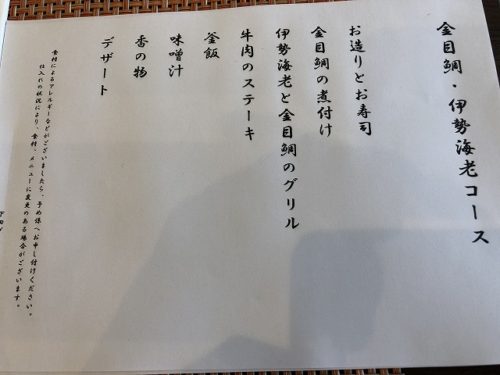 金目鯛・伊勢海老コース
お造りとお寿司
金目鯛の煮付け
伊勢海老と金目鯛のグリル
牛肉のステーキ
釜飯
味噌汁
香の物
デザート
食材によるアレルギーなどがございましたら、予め係へお申し付けください。
仕入れの状況により、食材、メニューに変更のある場合がございます。